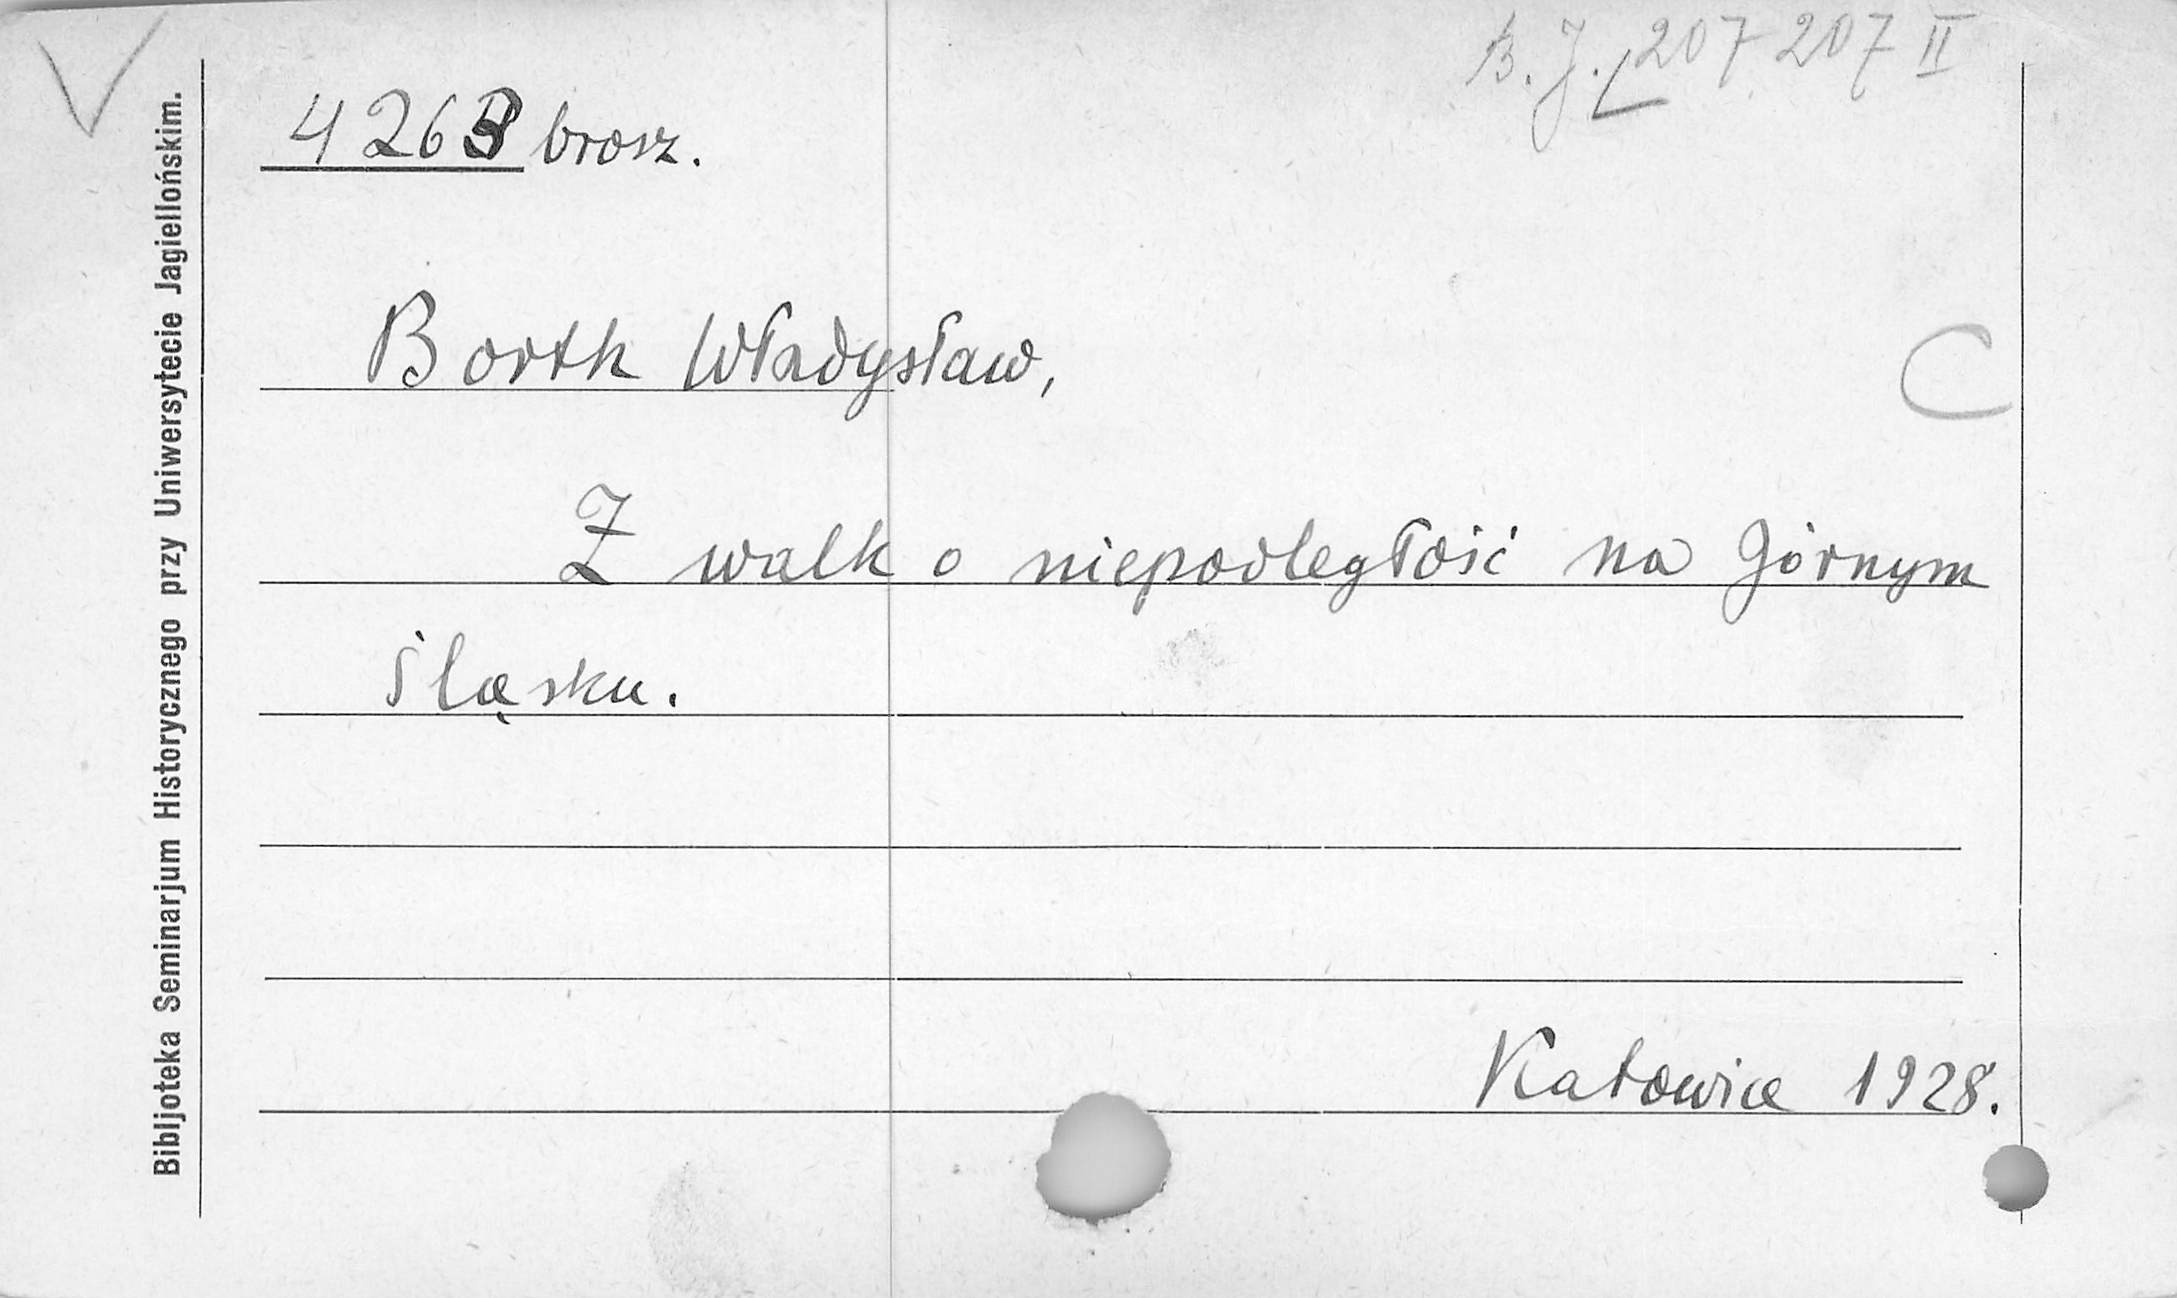 B. J. 207 207 II
4263 brosz.
Borth Władysław,
C
Z walk o niepodległość na Górnym
Śląsku.
Katowice 1928.
Bibljoteka Seminarjum Historycznego przy Uniwersytecie Jagiellońskim.